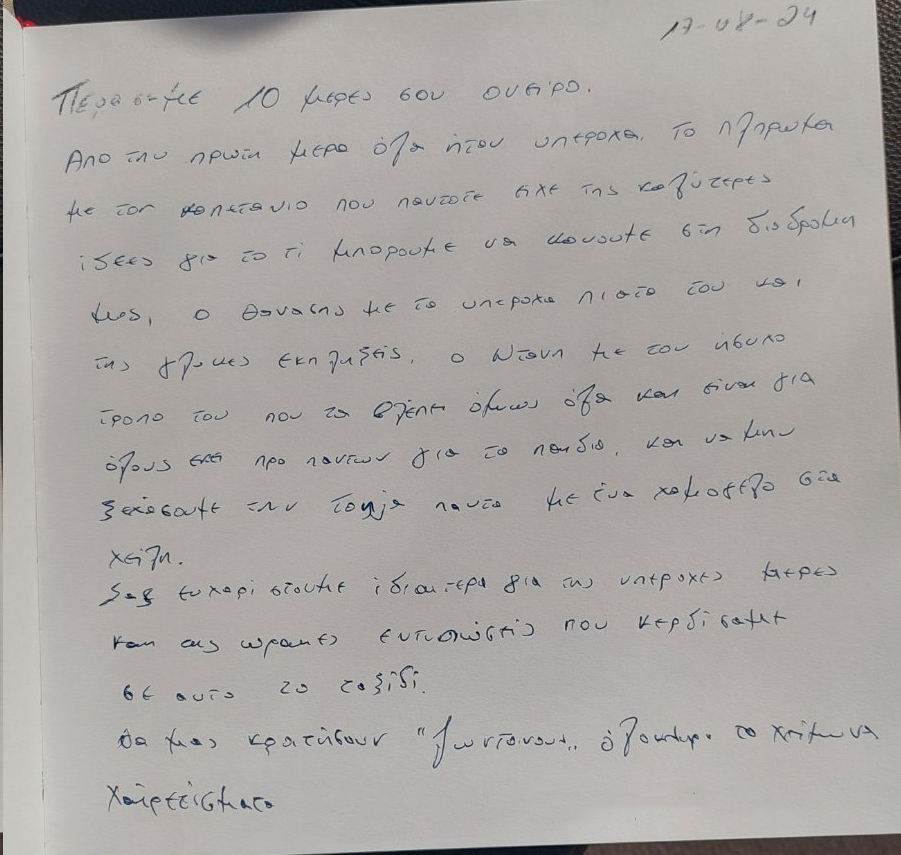 17-08-24
Περασαμε 10 μερες σαν ονειρο.
Απο την πρωτη μερα όλα ήταν υπεροχα. Το πληρωμα
με τον καπετανιο που παντοτε ειχε της καλύτερες
ιδεες για το τι μπορουμε να κανουμε στη διαδρομη
μας, ο Θανασης με τα υπεροχα πιατα του και
της γλυκες εκπληξεις, ο Ντανη με τον ήσυχο
τροπο του που τα βλεπει όμως όλα και ειναι για
όλους εκει προ παντων για τα παιδια, και να μην
ξεχασουμε την παντα με ένα χαμογελο στα
χειλη.
Σας ευχαριστουμε ιδιαιτερα για της υπεροχες μερες
και της ωραιες εντυπωσεις που κερδισαμε
σε αυτο το ταξιδι.
Θα μας κρατήσουν "ζωντανους" όλοκληρο το χειμωνα
Χαιρετισματα